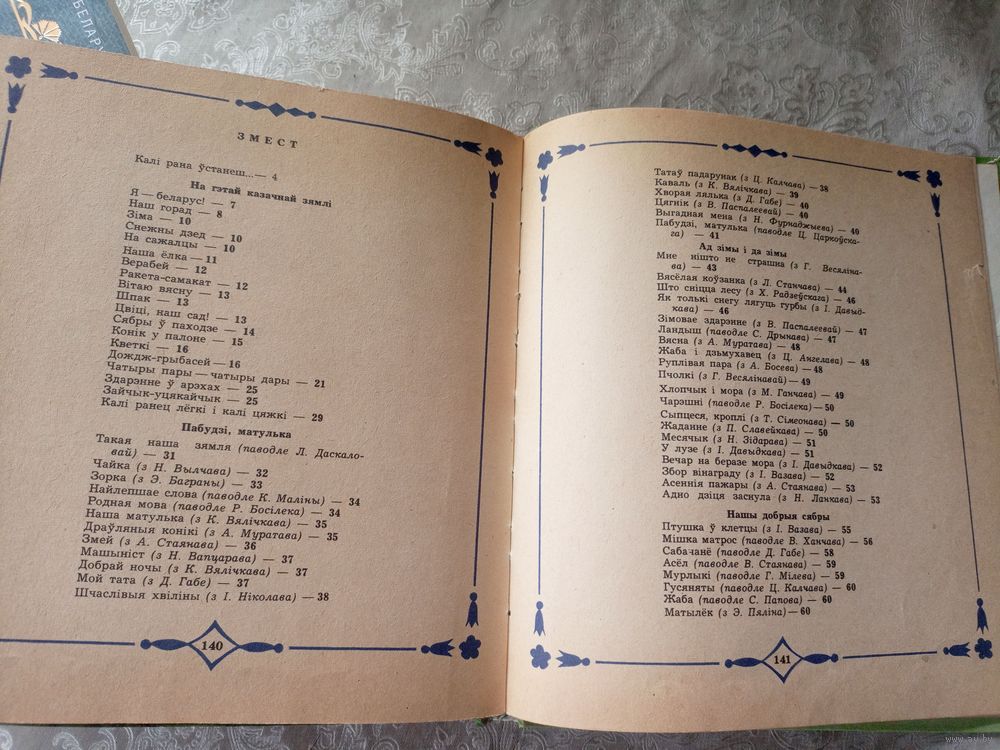 БЕЛАРУ
ЗМЕСТ
Калі рана ўстанеш...— 4
На гэтай казачнай зямлі
Я — беларус! — 7
Наш горад — 8
Зіма — 10
Снежны дзед — 10
На сажалцы — 10
Наша ёлка — 11
Верабей — 12
Ракета-самакат — 12
Вітаю вясну — 13
Шпак — 13
Цвіці, наш сад! — 13
Сябры ў паходзе — 14
Конік у палоне — 15
Кветкі — 16
Дождж-грыбасей — 16
Чатыры пары — чатыры дары — 21
Здарэнне ў арэхах — 25
Зайчык-уцякайчык — 25
Калі ранец лёгкі і калі цяжкі — 29
Пабудзі, матулька
Такая наша зямля (паводле Л. Даскало-
вай) — 31
Чайка (з Н. Вылчава) — 32
Зорка (з Э. Баграны) — 33
Найлепшае слова (паводле К. Маліны) — 34
Родная мова (паводле Р. Босілека) — 34
Наша матулька (з К. Вялічкава) — 35
Драўляныя конікі (з А. Муратава) — 35
Змей (з А. Стаянава) — 36
Машыніст (з Н. Вапцарава) — 37
Добрай ночы (з К. Вялічкава) — 37
Мой тата (з Д. Габе) — 37
Шчаслівыя хвіліны (з І. Ніколава) — 38
140
Татаў падарунак (з Ц. Калчава) — 38
Каваль (з К. Вялічкава) — 39
Хворая лялька (з Д. Габе) — 40
Цягнік (з В. Паспалеевай) — 40
Выгадная мена (з Н. Фурнаджыева) — 40
Пабудзі, матулька (паводле Ц. Царкоўска-
га) — 41
Ад зімы і да зімы
Мне нішто не страшна (з Г. Весяліна-
ва) — 43
Вясёлая коўзанка (з Л. Станчава) — 44
Што сніцца лесу (з Х. Радзеўскага) — 46
Як толькі снегу лягуць гурбы (з І. Давыд-
кава) — 46
Зімовае здарэнне (з В. Паспалеевай) — 47
Ландыш (паводле С. Дрынава) — 47
Вясна (з А. Муратава) — 48
Жаба і дзьмухавец (з Ц. Ангелава) — 48
Руплівая пара (з А. Босева) — 48
Пчолкі (з Г. Весялінавай) — 49
Хлопчык і мора (з М. Ганчава) — 49
Чарэшні (паводле Р. Босілека) — 50
Сыпцеся, кроплі (з Т. Сімеонава) — 50
Жаданне (з П. Славейкава) — 50
Месячык (з Н. Зідарава) — 51
У лузе (з І. Давыдкава) — 51
Вечар на беразе мора (з І. Давыдкава) — 52
Збор вінаграду (з І. Вазава) — 52
Асеннія пажары (з А. Стаянава) — 53
Адно дзіця заснула (з Н. Ланкава) — 53
Нашы добрыя сябры
Птушка ў клетцы (з І. Вазава) — 55
Мішка матрос (паводле В. Ханчава) — 56
Сабачанё (паводле Д. Габе) — 58
Асёл (паводле В. Стаянава) — 59
Мурлыкі (паводле Г. Мілева) — 59
Гусяняты (паводле Ц. Калчава) — 60
Жаба (паводле С. Папова) — 60
Матылёк (з Э. Пяліна) — 60
141
www.ay.by